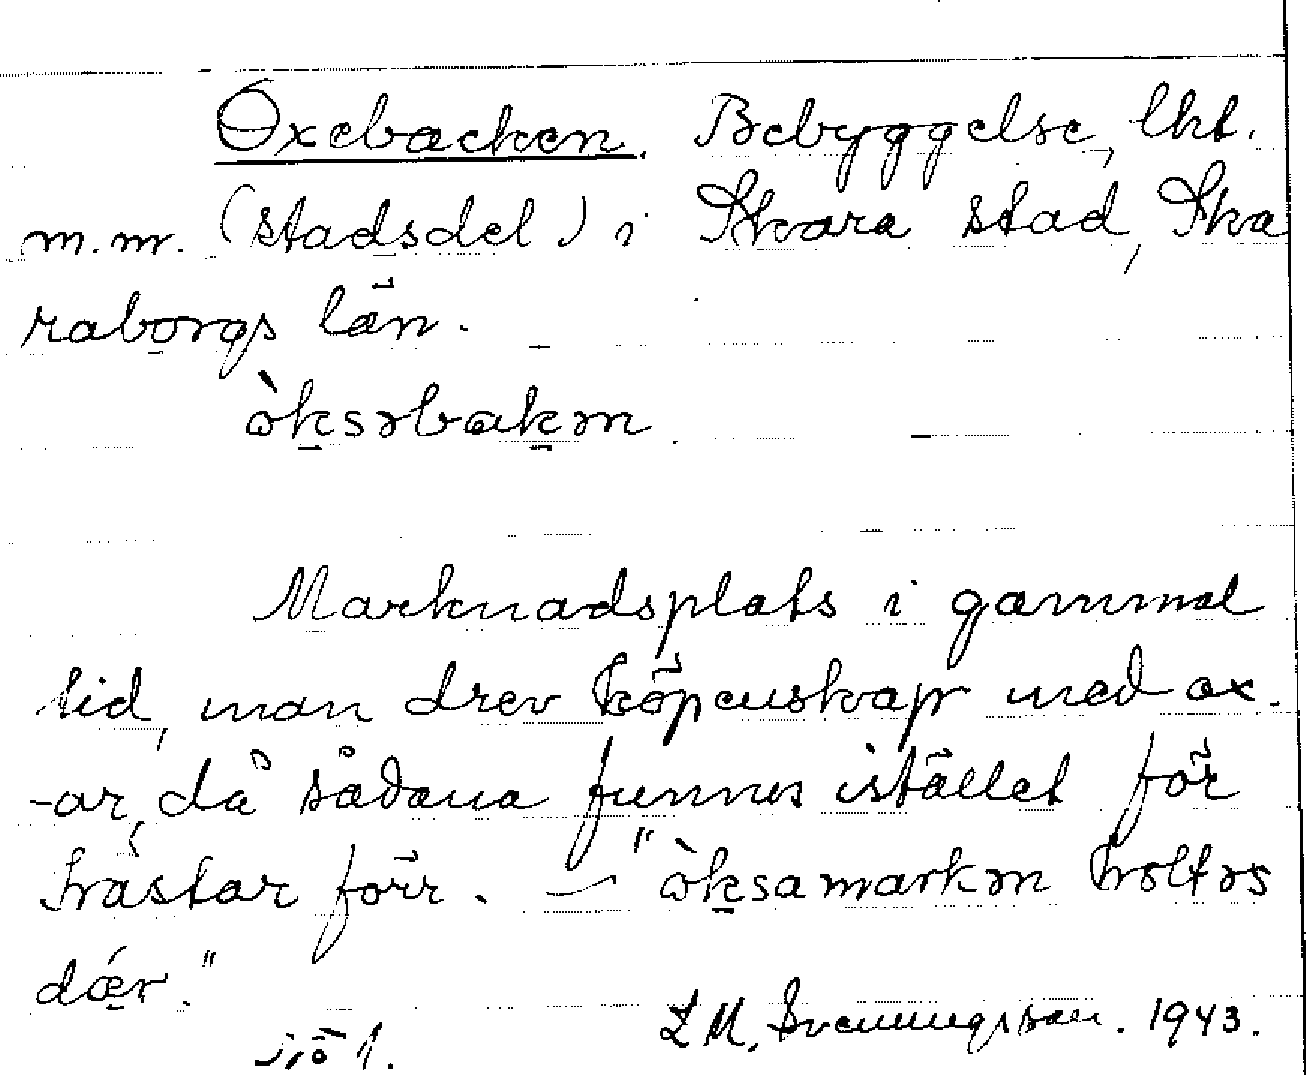 Oxebacken. Bebyggelse, lht.
m.m. (stadsdel) i Skara stad, Ska
raborgs län.
òksəbakən
Marknadsplats i gammal
tid, man drev köpenskap med ox-
-ar, då sådana funnes istället för
hästar förr. — "òksamarkən hɷltəs
dǽr."
L M. Svenningsson. 1943.